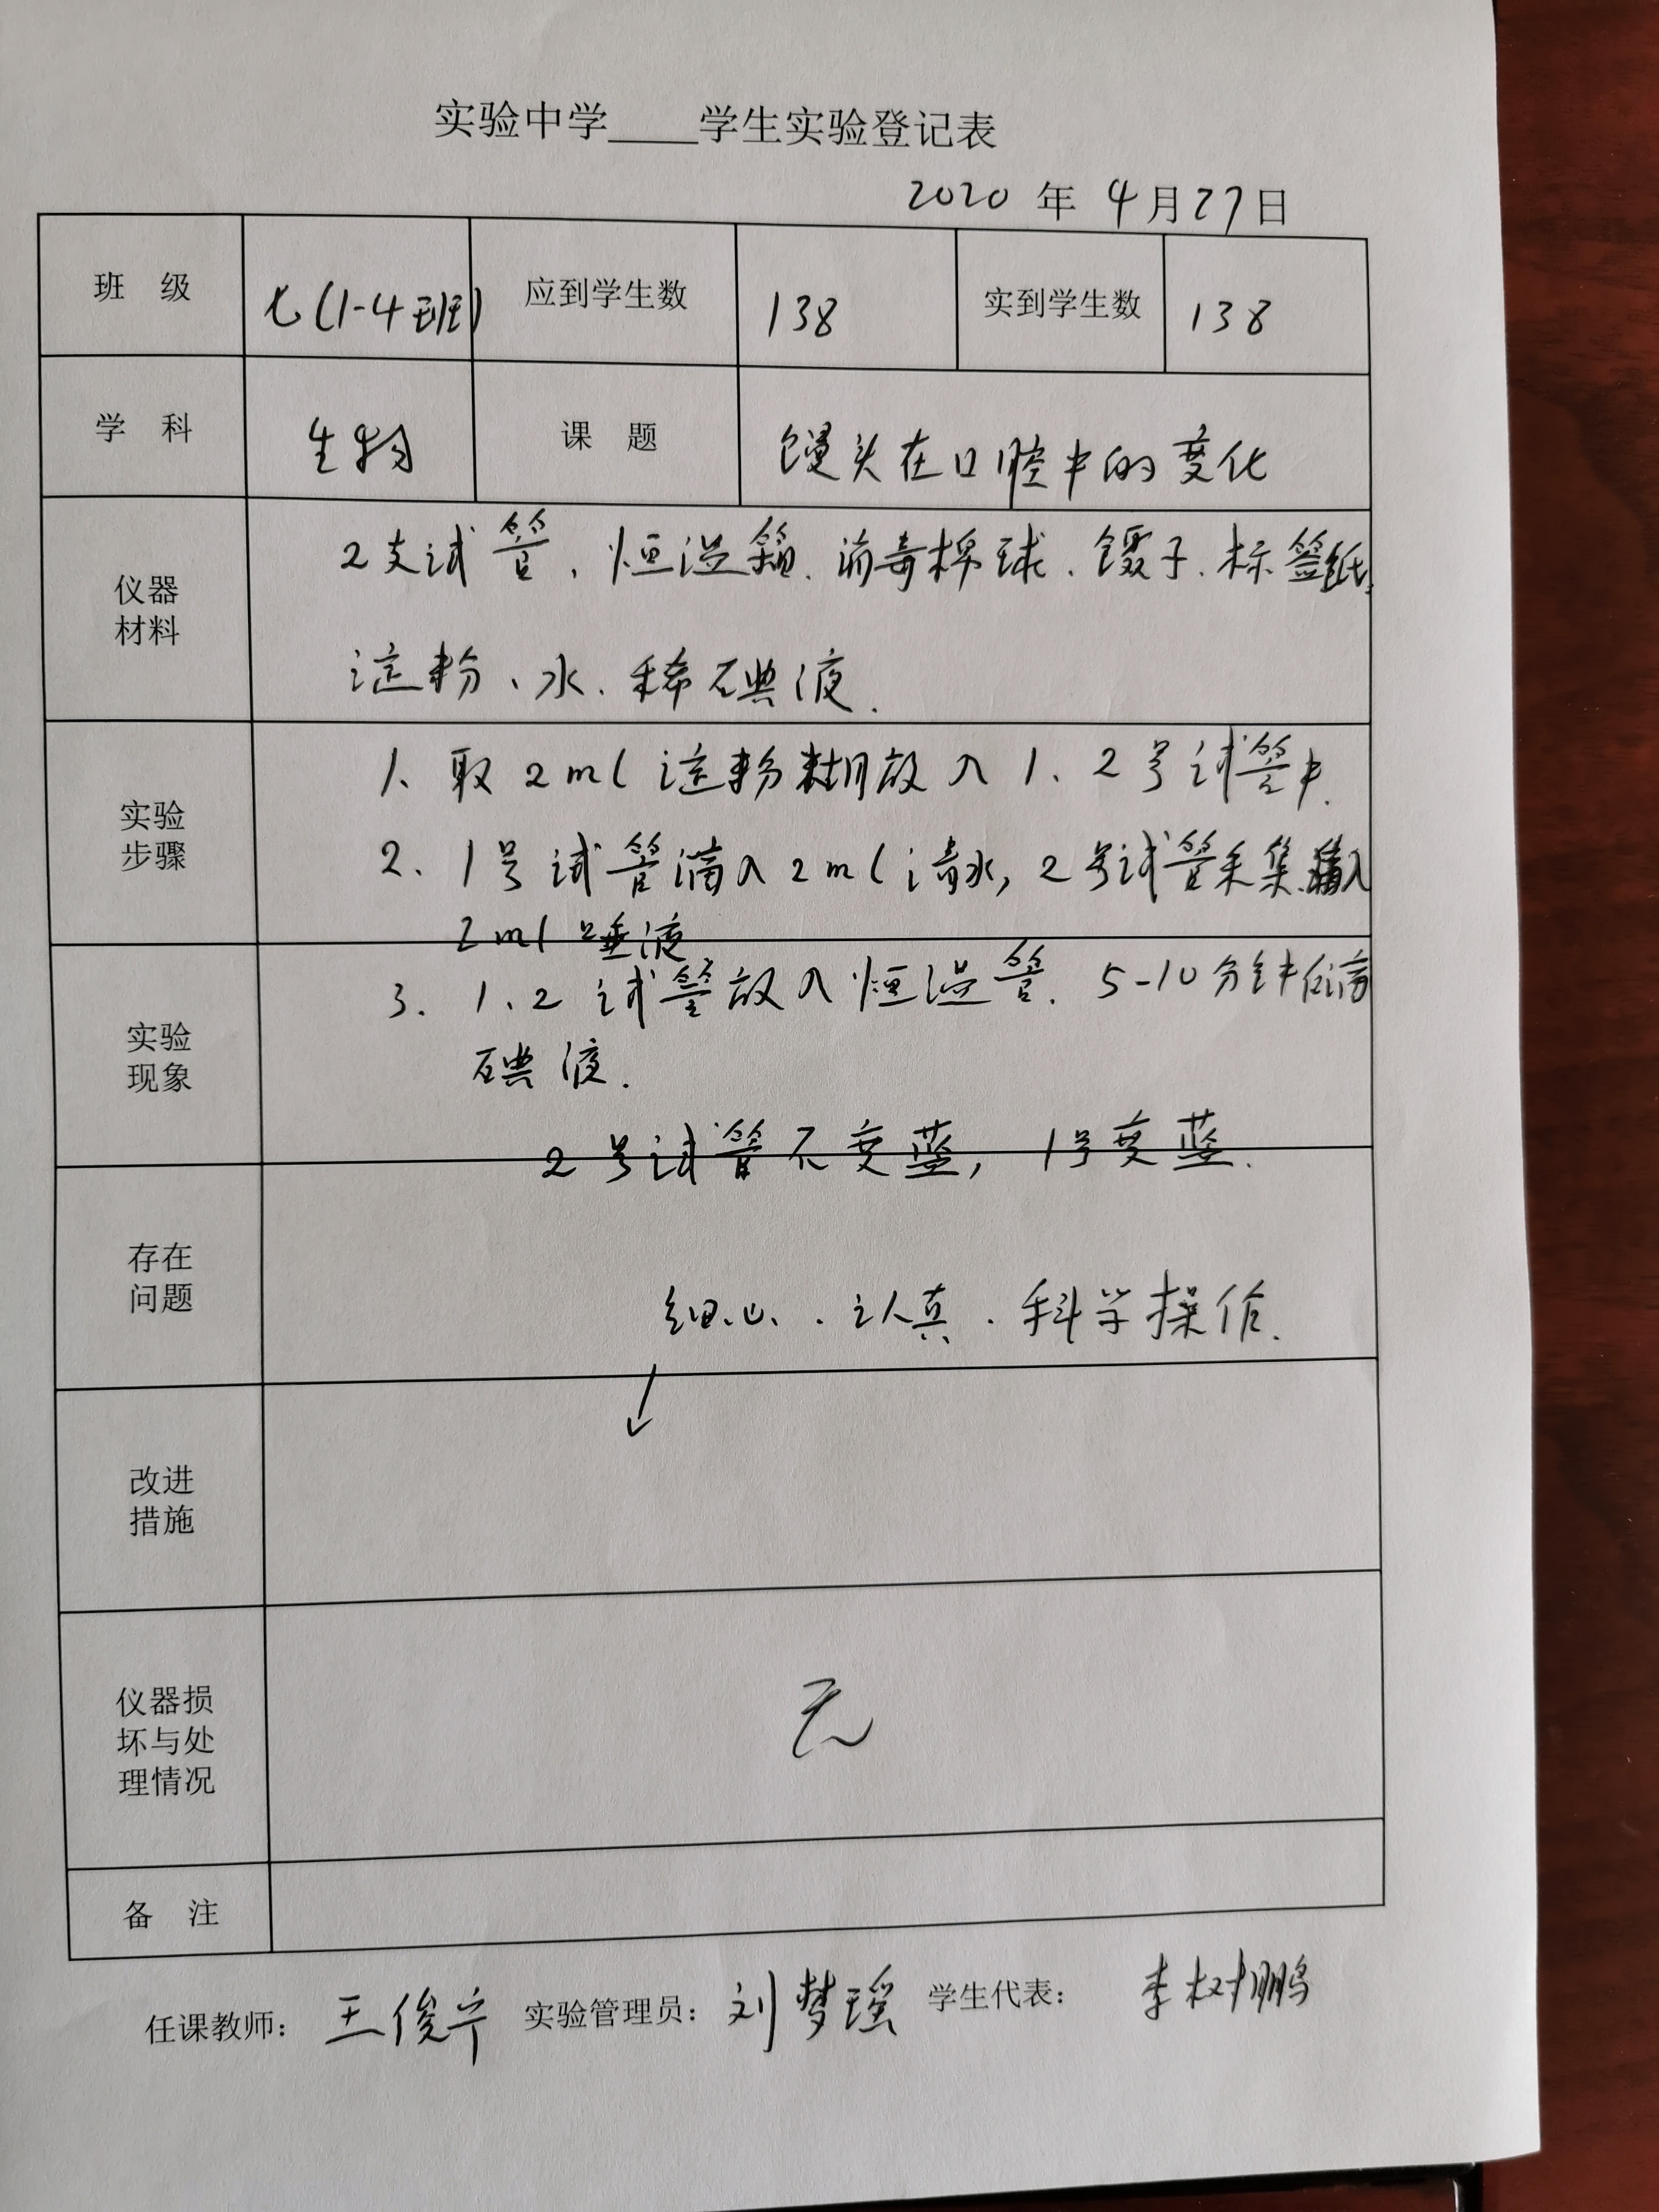 实验中学____学生实验登记表
2020 年 4月27日
班 级 七(1-4班) 应到学生数 138 实到学生数 138
学 科 生物 课 题 馒头在口腔中的变化
仪器
材料
2支试管、恒温箱、消毒棉球、镊子、标签纸、
淀粉、水、稀碘液.
实验
步骤
1、取2ml淀粉糊放入1、2号试管中.
2、1号试管滴入2ml清水, 2号试管采集 入
2ml唾液
实验
现象
3. 1、2试管放入恒温管. 5-10分钟 滴
碘液.
2号试管不变蓝, 1号变蓝.
存在
问题
细心、认真、科学操作.
改进
措施
仪器损
坏与处
理情况
无
备 注
任课教师: 王俊宁 实验管理员: 刘梦瑶 学生代表: 李树鹏